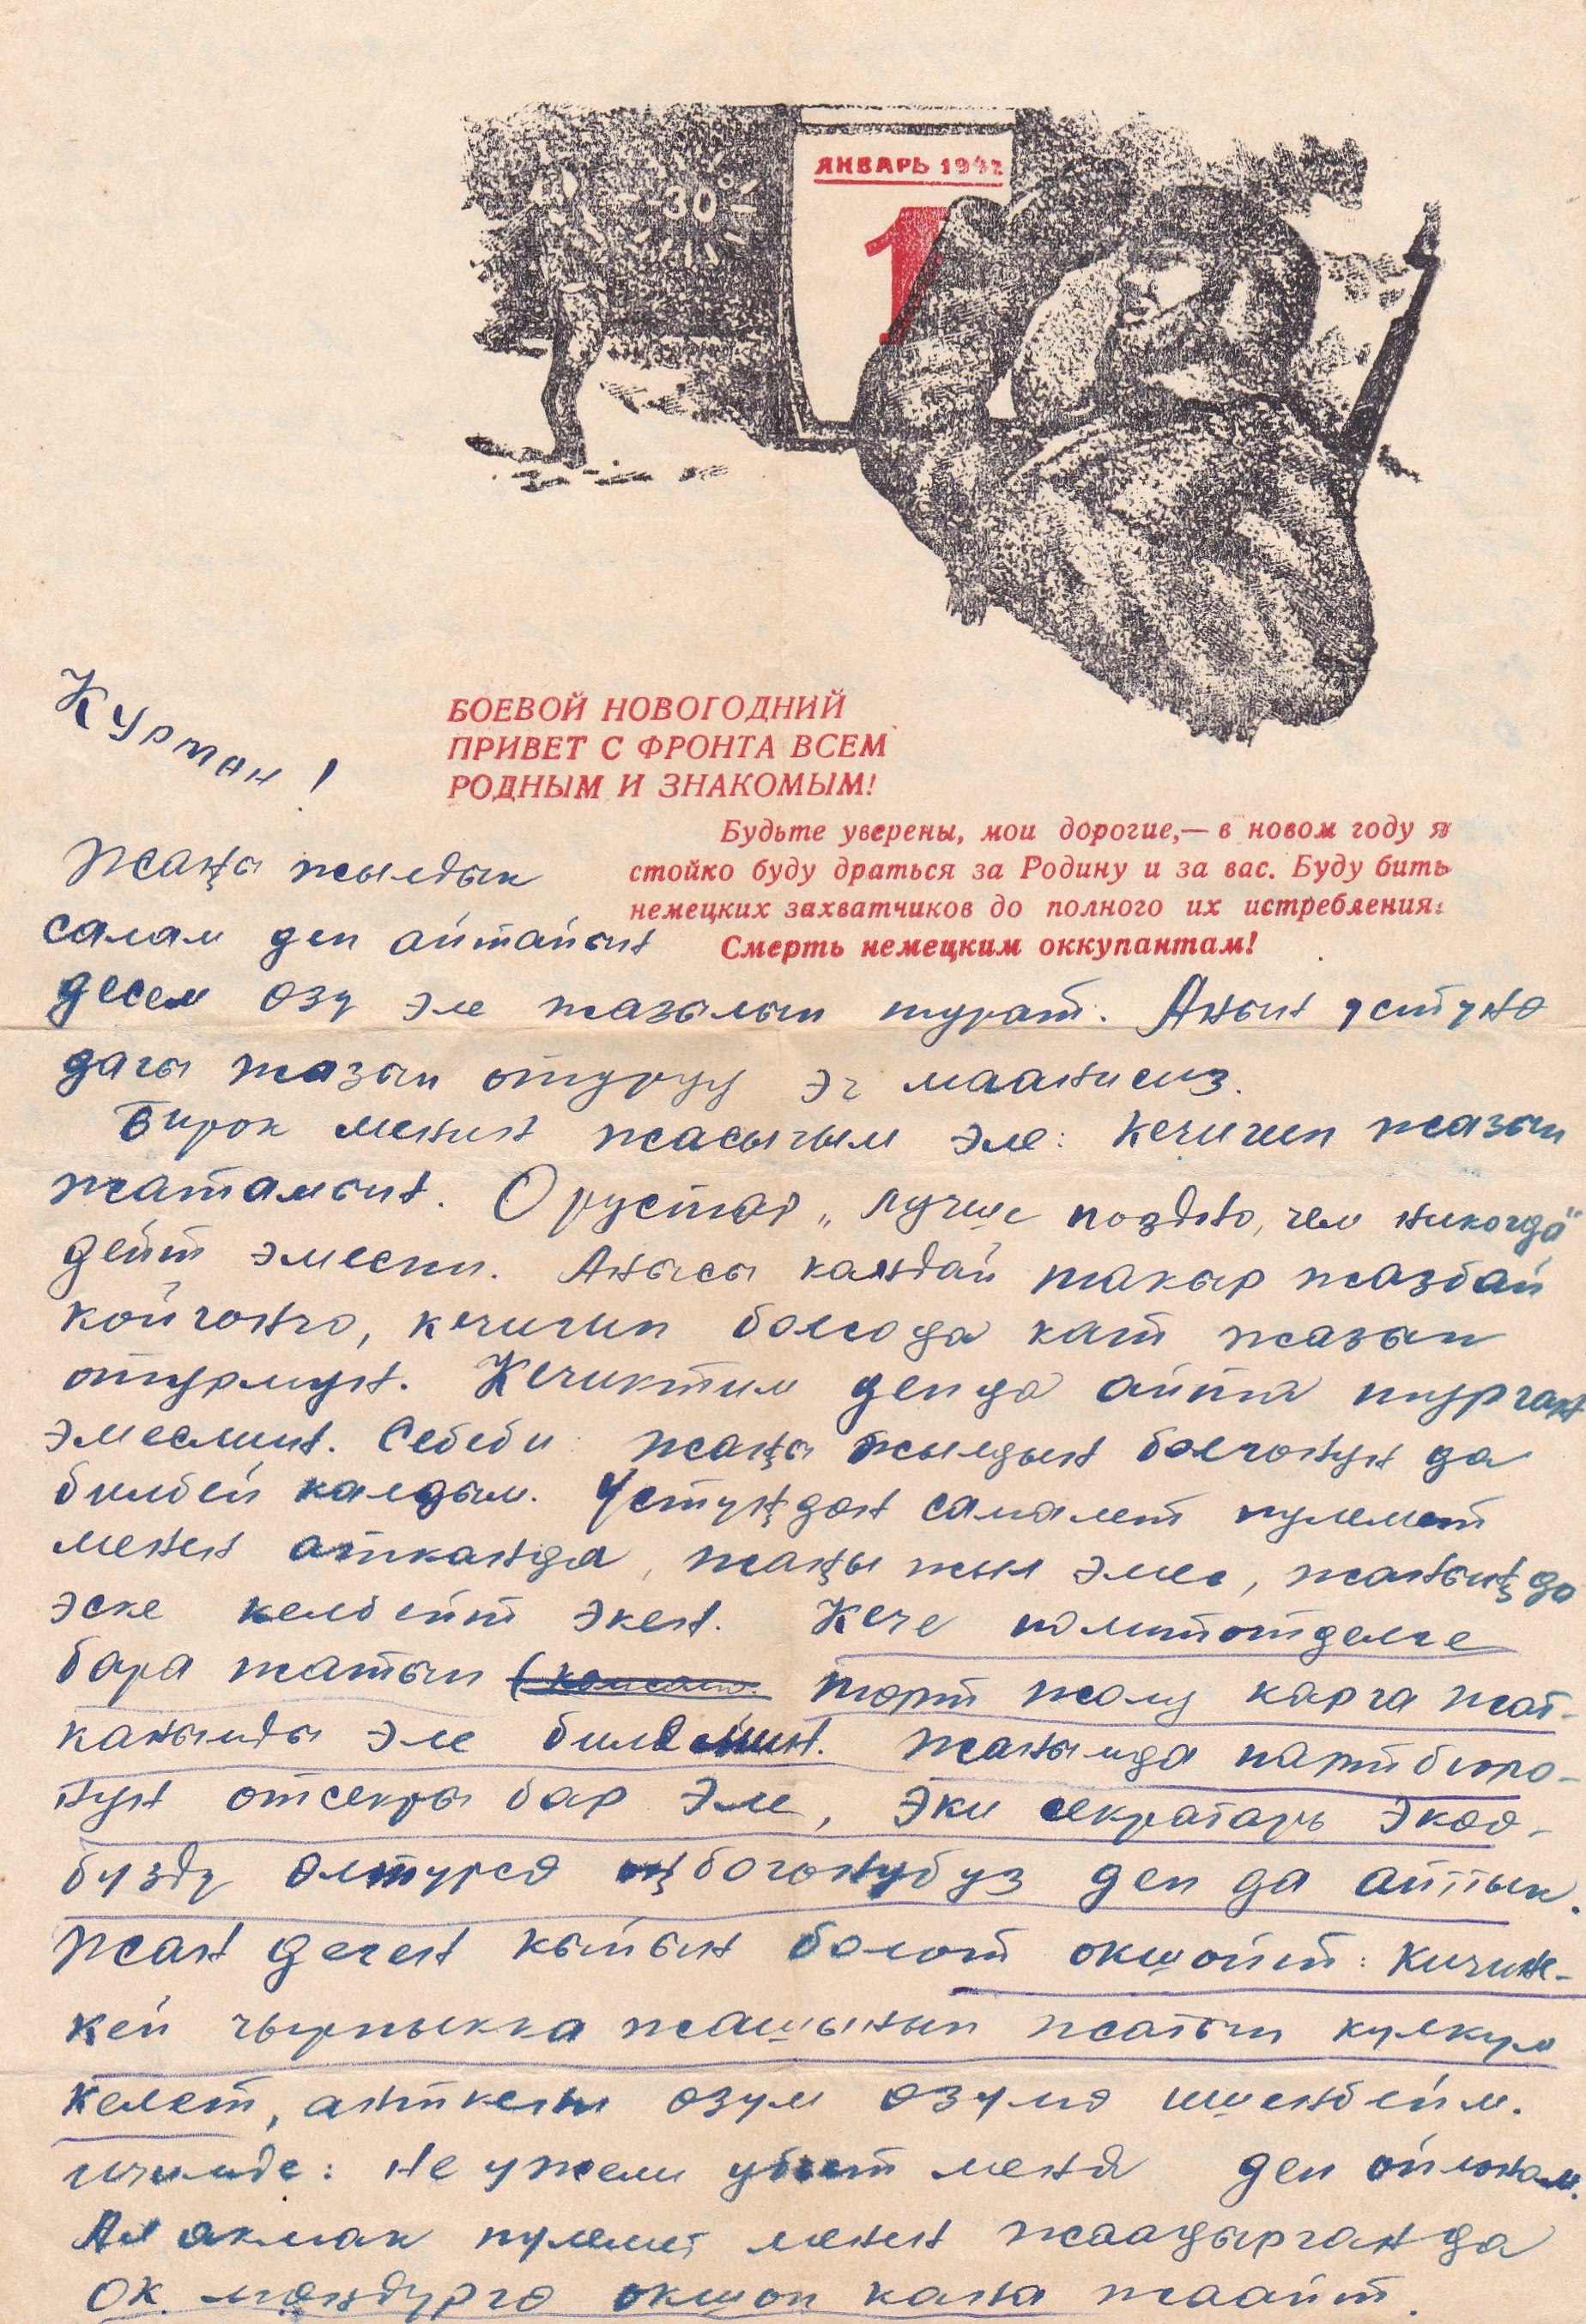 ЯНВАРЬ 1942
1
30°
Курман!
БОЕВОЙ НОВОГОДНИЙ
ПРИВЕТ С ФРОНТА ВСЕМ
РОДНЫМ И ЗНАКОМЫМ!
Будьте уверены, мои дорогие,— в новом году я
стойко буду драться за Родину и за вас. Буду бить
немецких захватчиков до полного их истребления.
Смерть немецким оккупантам!
Жаңы жылдык
салам деп айтайын
десем өзү эле жазылып турат. Анын үстүнө
дагы жазып отуруу эч маанисиз.
Бирок менин жасыгым эле: кечигип жазып
жатамын. Орустар „лучше поздно, чем никогда"
дейт эмеспи. Анысы кандай такыр жазбай
койгончо, кечигип болсо да кат жазып
отурмун. Кечиктим деп да айта турган
эмесмин. Себеби: жаңы жылдын болгонун да
билбей калдым. Үстүңдөн самалет пулемет
менен атканда, жаңы жыл эмес, жаның да
эске келбейт экен. Кече политотделге
бара жатып төрт жолу карга жат-
канымды эле билемин. Жанымда партбюро-
нун отсекры бар эле, эки секретарь экөө-
бүздү өлтүрсө болгонубуз деп да айттык.
Жан деген кыйын болот окшойт: кичине-
кей чырпыкка жашынып жатып күлкүм
келет, анткени өзүм өзүмө ишенбейм.
ичимде: неужели убьет меня деп ойлоном.
Ал акмак пулемет менен жаадырганда
ок мөндүргө окшоп кана жаайт.